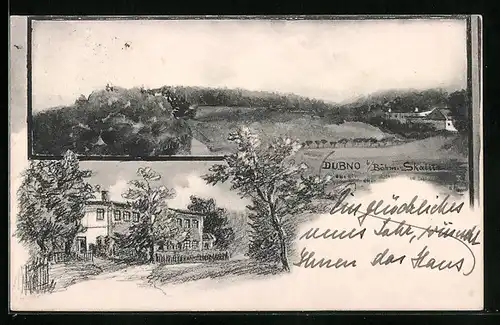 DUBNO b/ Böhm. Skalitz
Ein glückliches
neues Jahr, wünscht
Ihnen das Haus